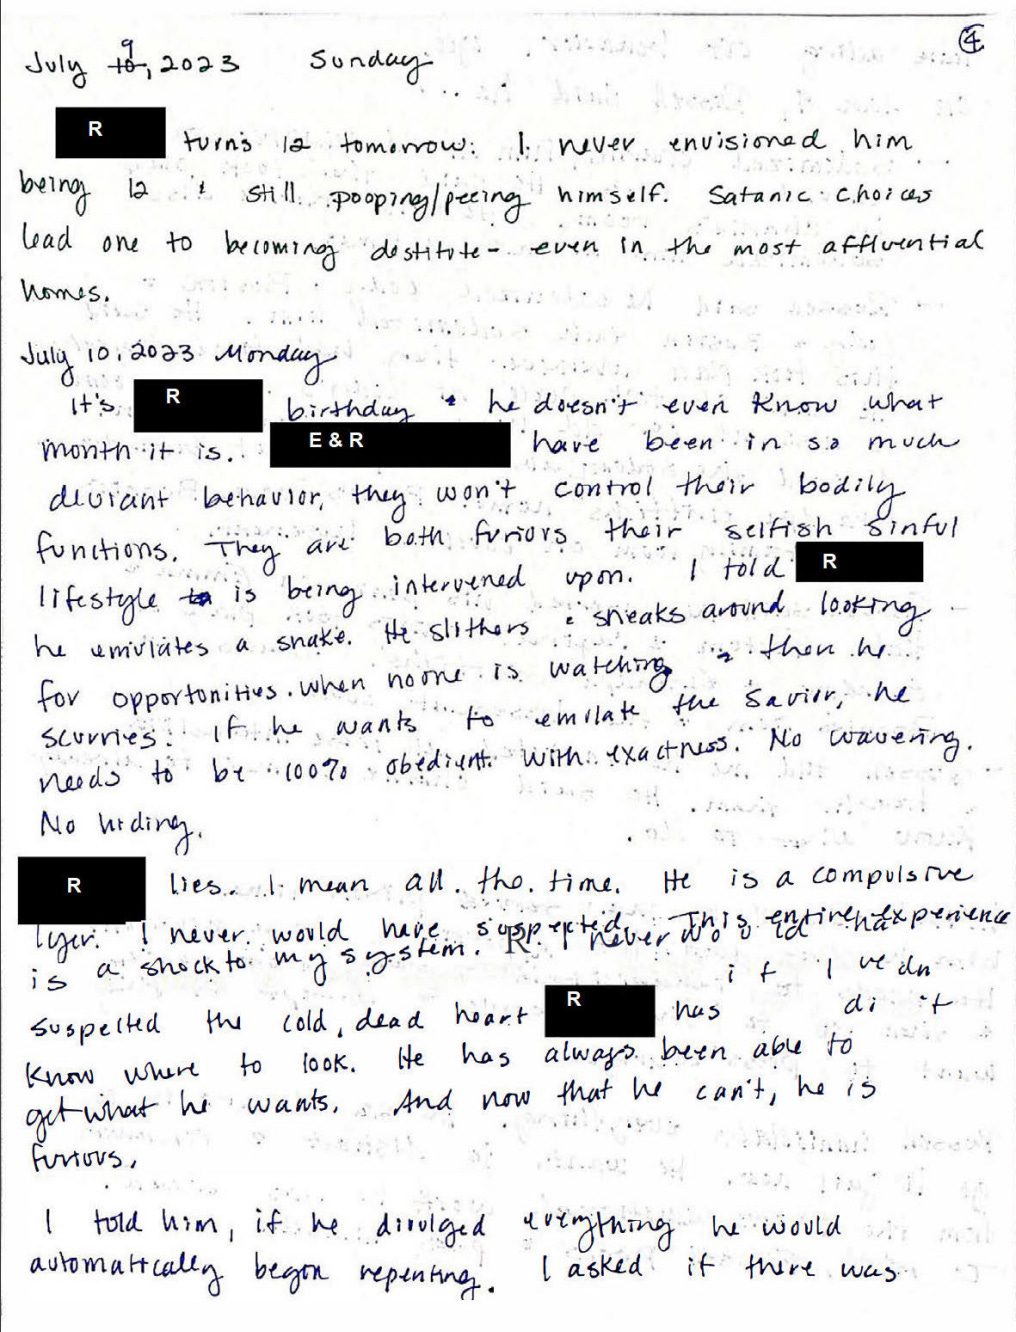 ④
July 9 10, 2023 Sunday
R turns 12 tomorrow. I never envisioned him
being 12 & still pooping/peeing himself. Satanic choices
lead one to becoming destitute - even in the most affluential
homes.
July 10, 2023 Monday
It's R birthday & he doesn't even know what
month it is. E & R have been in so much
deviant behavior, they won't control their bodily
functions. They are both furious their selfish sinful
lifestyle is being intervened upon. I told R
he emulates a snake. He slithers & sneaks around looking
for opportunities when no one is watching & then he
scurries. If he wants to emulate the Savior, he
needs to be 100% obedient with exactness. No wavering.
No hiding.
R lies. I mean all the time. He is a compulsive
lyer. I never would have suspected. This entire experience
is a shock to my system. R I never would ha
suspected the cold, dead heart R has if I didn't
know where to look. He has always been able to
get what he wants. And now that he can't, he is
furious.
I told him, if he divulged everything he would
automatically begin repenting. I asked if there was